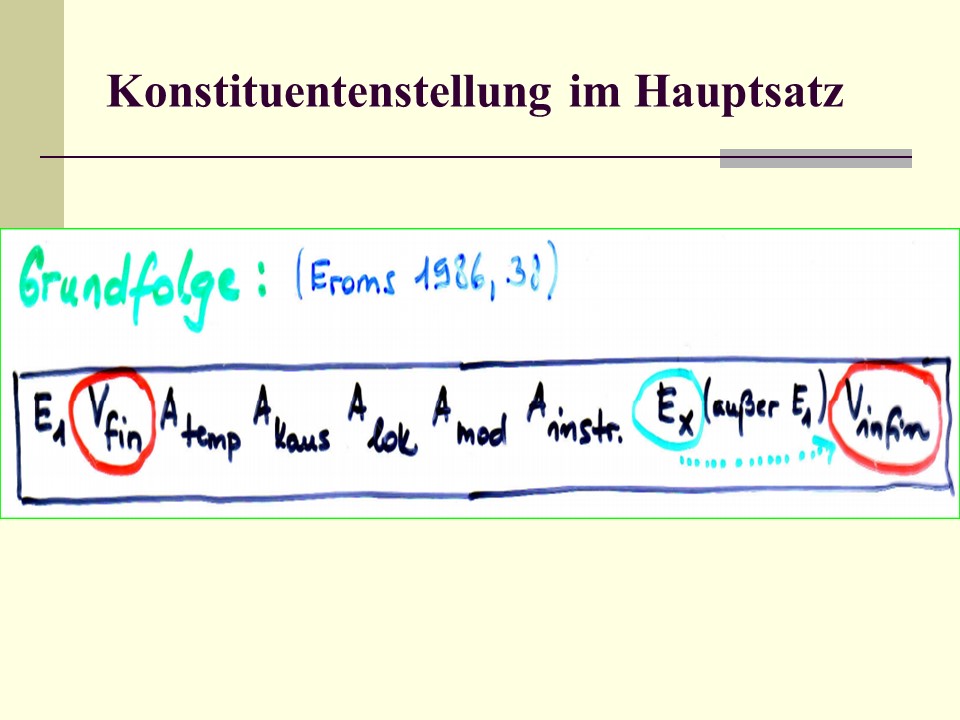 Konstituentenstellung im Hauptsatz
Grundfolge: (Eroms 1986, 38)
E1 Vfin Atemp Akaus Alok Amod Ainstr. Ex (außer E1) Vinfin